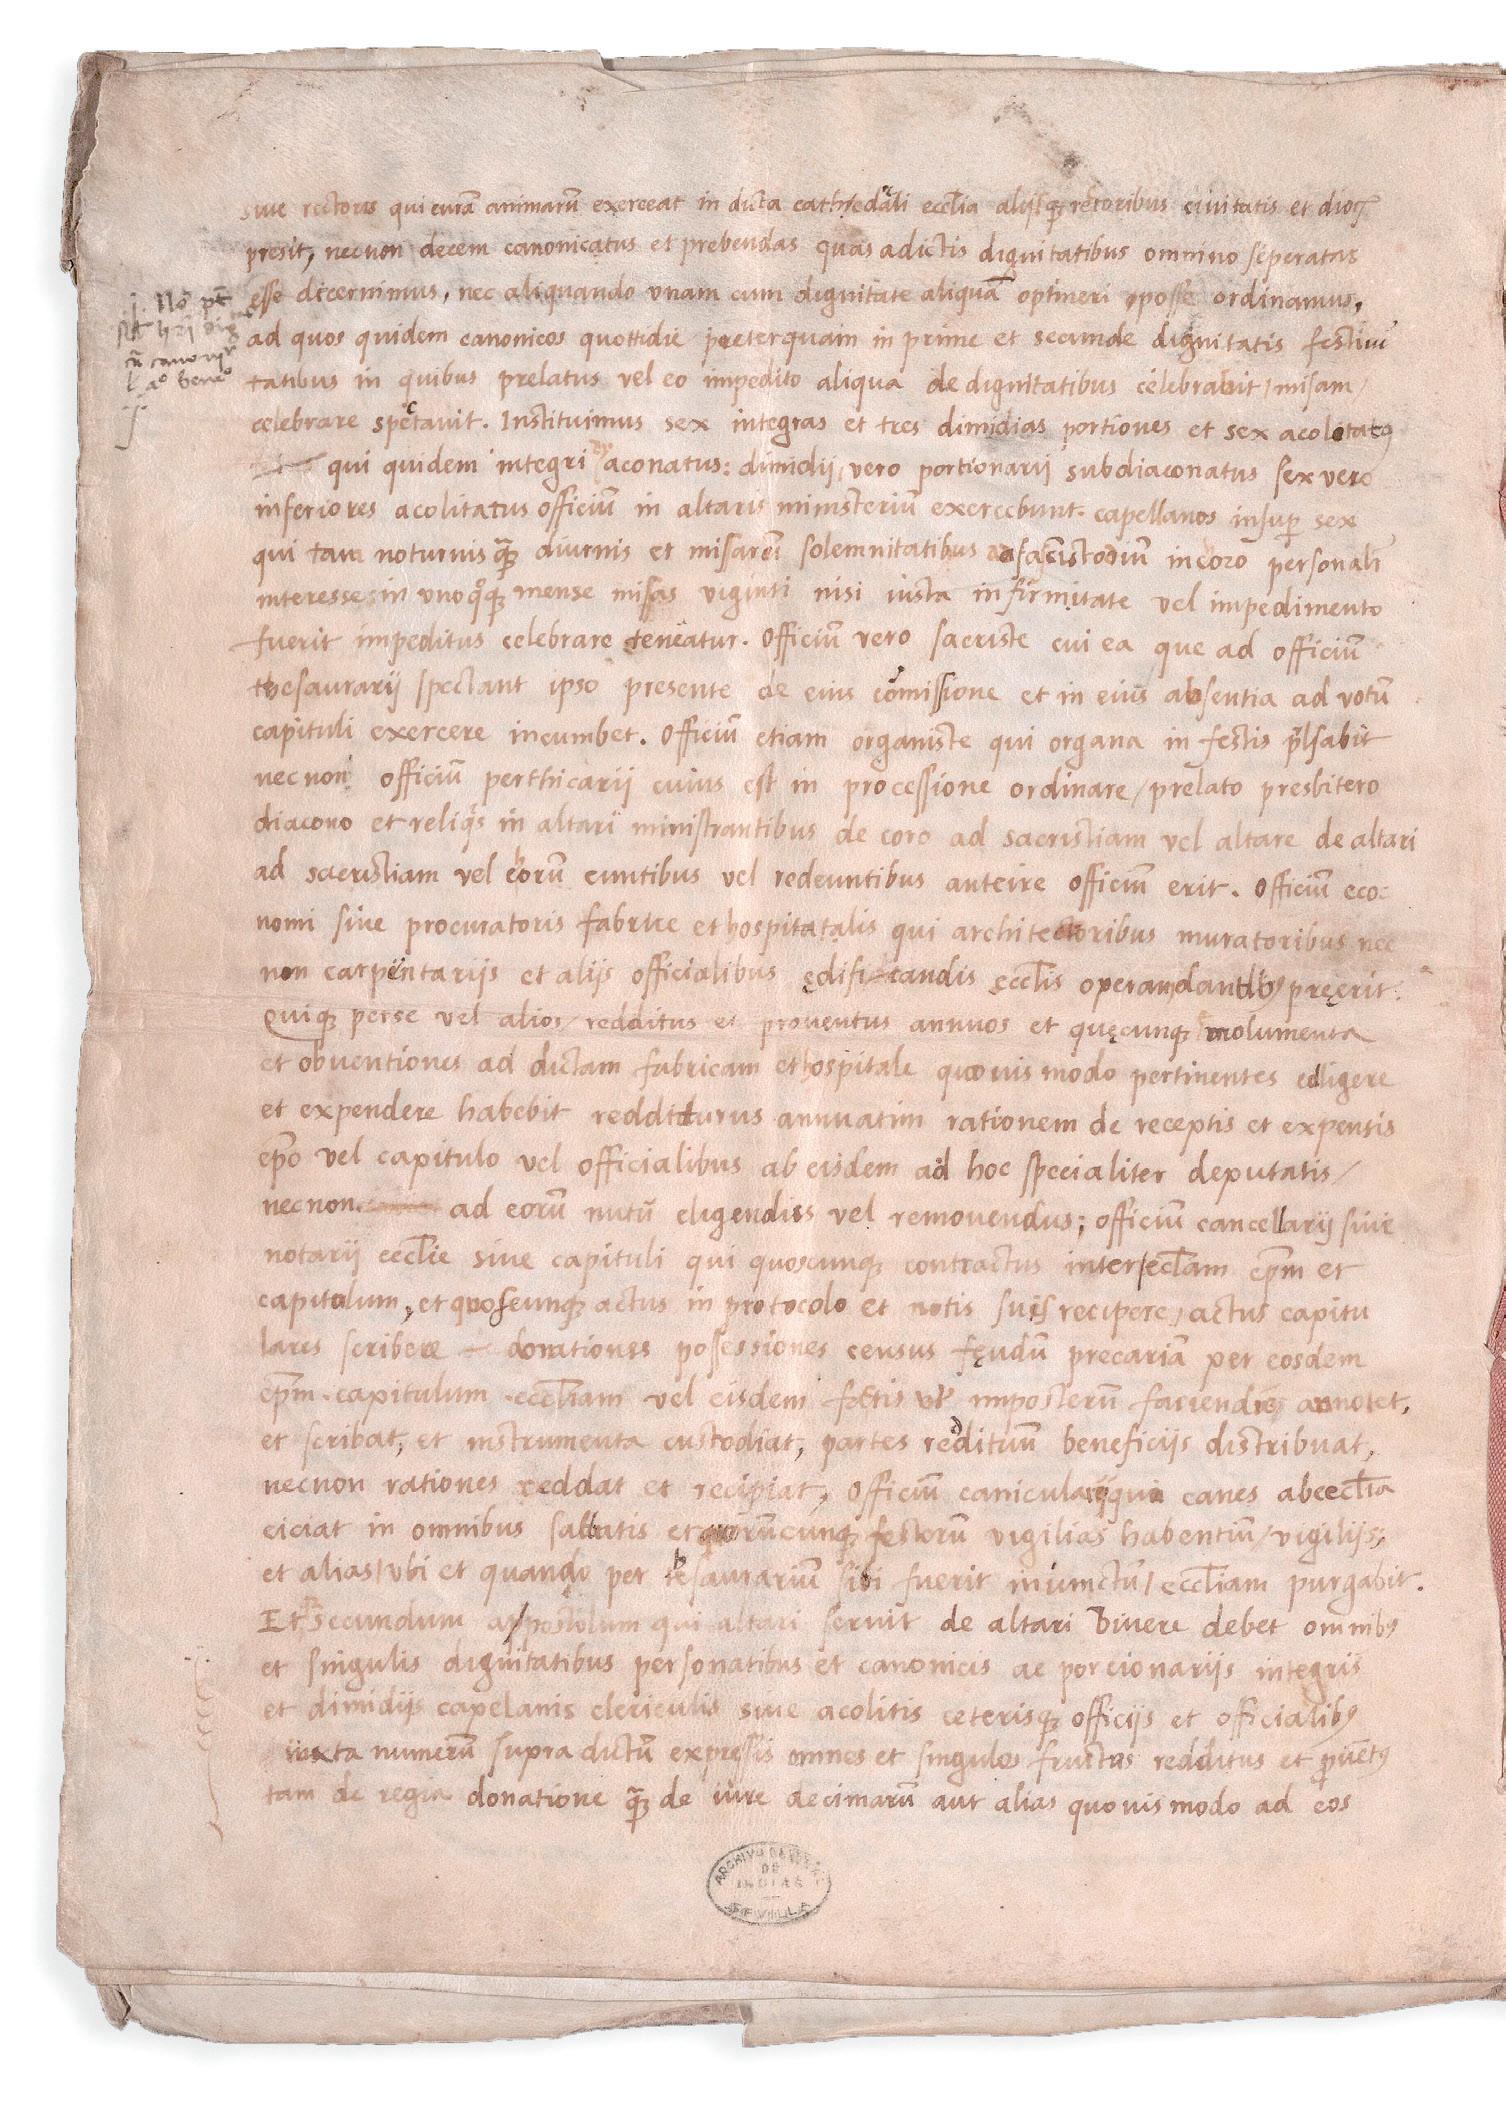 sive rectoris qui curã animarũ exerceat in dicta cathedrali eccl̃ia alijsq; rectoribus civitatis et dioc̃
presit, necnon decem canonicatus et prebendas quas adictis dignitatibus omnino seperatas
esse decernimus, nec aliquando vnam cum dignitate aliquã optineri posse ordinamus,
ad quos quidem canonicos quottidie preterquam in prime et secunde dignitatis festivi
tatibus in quibus prelatus vel eo impedito aliqua de dignitatibus celebrabit / misam /
celebrare spectavit. Instituimus sex integras et tres dimidias portiones et sex acolitatꝰ
qui quidem integri diaconatus: dimidij vero portionarij subdiaconatus sex vero
inferiores acolitatus officiũ in altaris ministeriũ exerecbunt. capellanos insuꝑ sex
qui tam noturnis quã diurnis et missarũ solemnitatibus in coro personalĩ
interesse: in unoq̊q; mense misas viginti nisi iusta infirmitate vel impedimento
fuerit impeditus celebrare teneatur. Officiũ vero sacriste cui ea que ad officiũ
thesaurarij spectant ipso presente de eius cõmissione et in eius absentia ad votũ
capituli exercere incumbet. Officiũ etiam organiste qui organa in festis pulsabit
necnon officiũ perthicarij cuius est in processione ordinare / prelato presbitero
diacono et reliqis in altari ministrantibus de coro ad sacristiam vel altare de altari
ad sacristiam vel corũ euntibus vel redeuntibus anteire officiũ erit. Officiũ eco
nomi sive procuratoris fabrice et hospitatalis qui architectoribus muratoribus nec
non carpentarijs et alijs officialibus ędificandis ęccl̃is preęrit.
Quiq; perse vel alios / redditus et proventus annuos et quęcunq; emolumenta
et obventiones ad dictam fabricam et hospitale quovis modo pertinentes colligere
et expendere habebit redditurus annuatim rationem de receptis et expensis
ep̃o vel capitulo vel officialibus ab eisdem ad hoc specialiter deputatis /
necnon ad eorũ nutũ eligendis vel removendus; officiũ cancellarij sive
notarij eccl̃ie sive capituli qui quoscunq; contractus inter eccl̃am ep̃m et
capitulum, et quoscunq; actus in protocolo et notis suis recipere / actus capitu
lares scribere donationes possessiones census fęudũ precariã per eosdem
ep̃m . capitulum . eccl̃iam vel eisdem imposterũ faciendis annotet,
et scribat, et instrumenta custodiat, partes reddituũ beneficijs distribuat,
necnon rationes reddat et recipiat, Officiũ canicularij qui canes abeccl̃ia
eiciat in omnibus sabbatis et quorũcunq; festorũ vigilias habentiũ / vigilijs;
et alias / ubi et quando per thesaurariũ sibi fuerit iniunctũ / eccl̃iam purgabit.
Et secundum appostolum qui altari servit de altari vivere debet omnibꝰ
et singulis dignitatibus personatibus et canonicis ac porcionarijs integris
et dimidijs capelanis clericulis sive acolitis ceterisq; officijs et officialibꝰ
iuxta numerũ supra dictũ expressis omnes et singulos fructus redditus et ꝓvẽtꝰ
tam de regia donatione quã de iure decimarũ aut alias quovis modo ad eos
ARCHIVO GENERAL
DE
INDIAS
SEVILLA